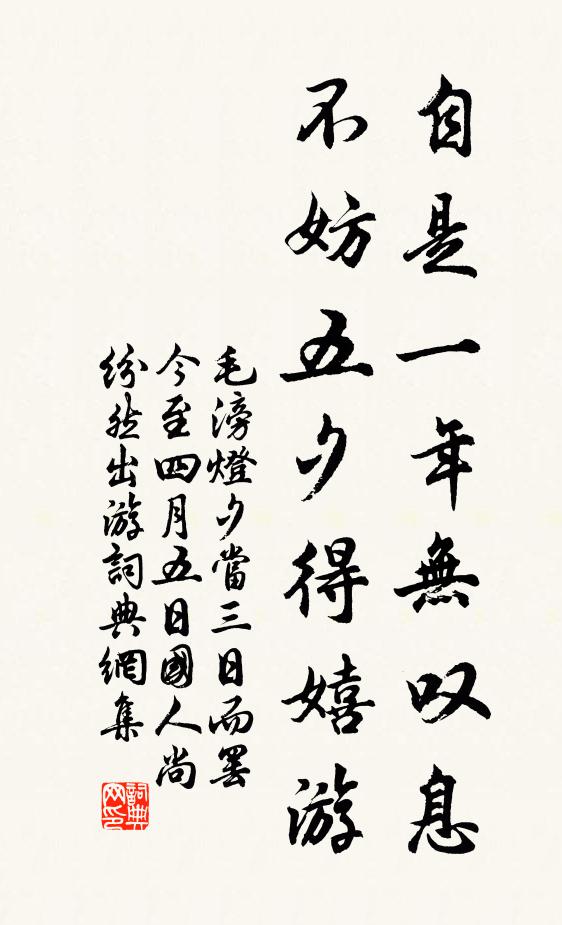 自是一年無叹息
不妨五夕得嬉游
毛滂燈夕當三日而罢
今至四月五日國人尚
纷然出游詞典網集
詞典网印